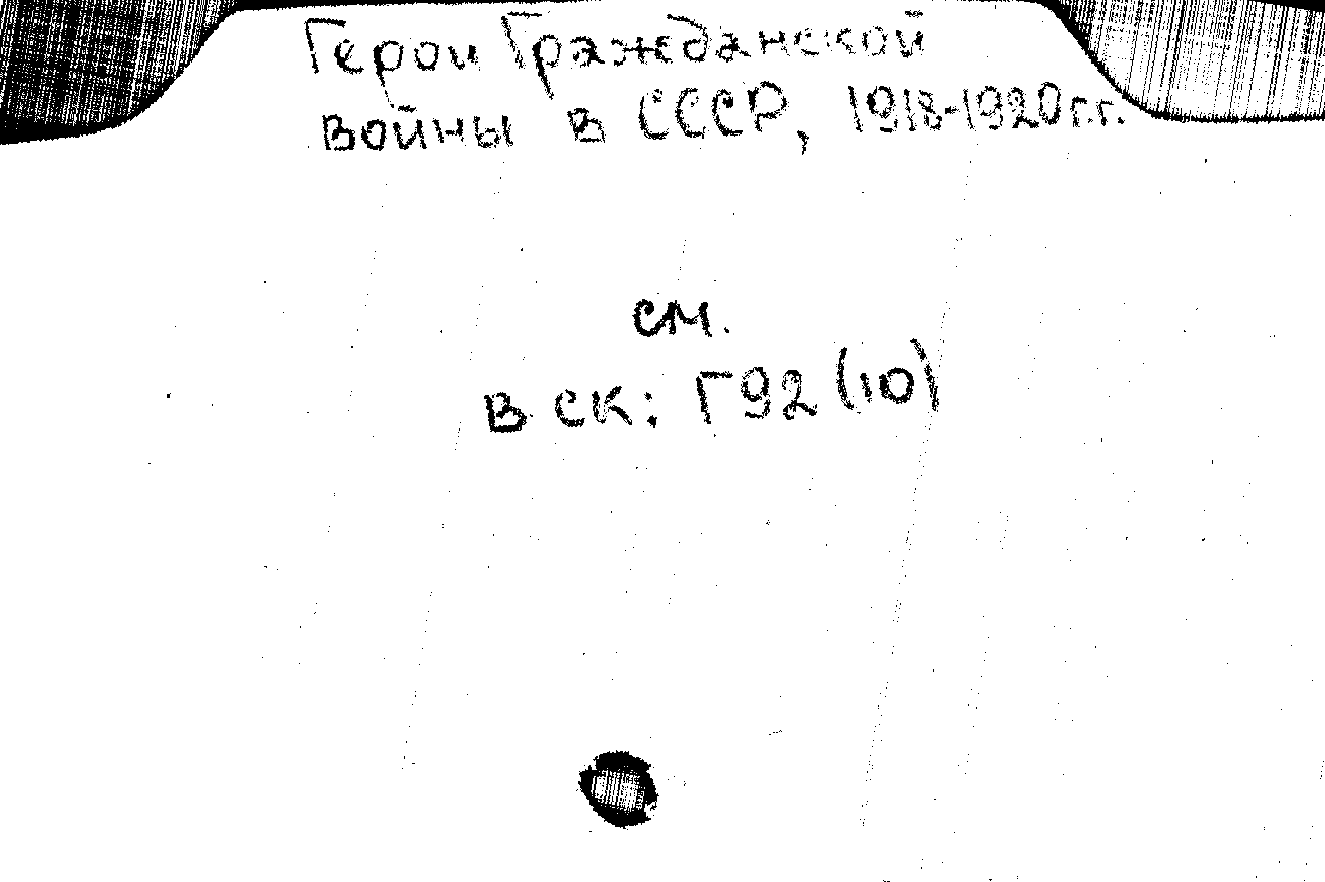 Герои Гражданской
войны в СССР, 1918-1920г.г.
см.
в ск: Г92(10)